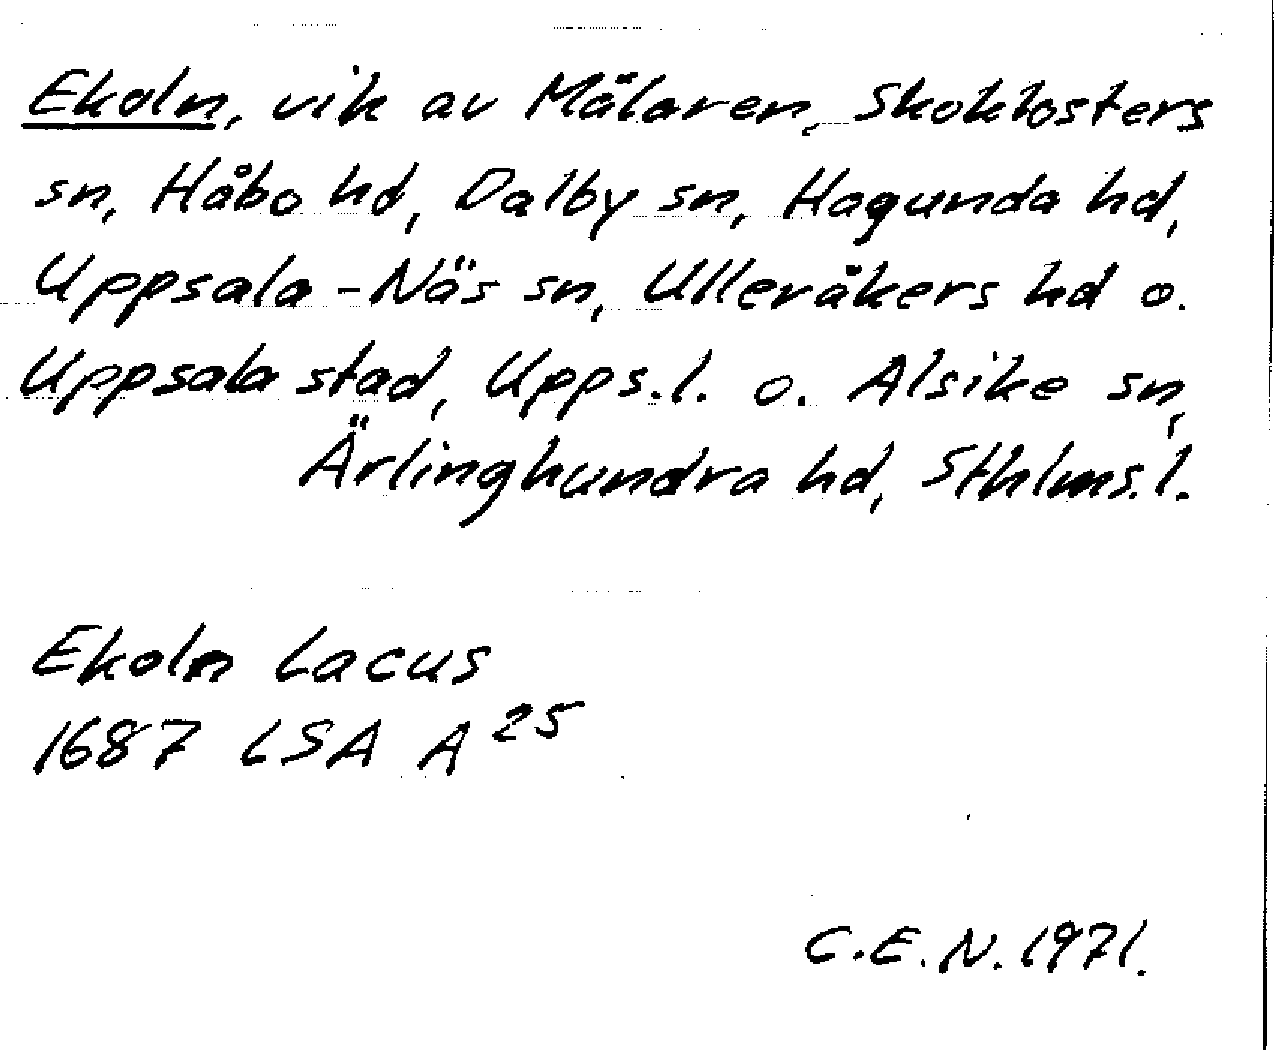 Ekoln, vik av Mälaren, Skoklosters
sn, Håbo hd, Dalby sn, Hagunda hd,
Uppsala-Näs sn, Ulleråkers hd o.
Uppsala stad, Upps.l. o. Alsike sn,
Ärlinghundra hd, Sthlms.l.
Ekoln Lacus
1687 LSA A 25
C.E.N. 1971.